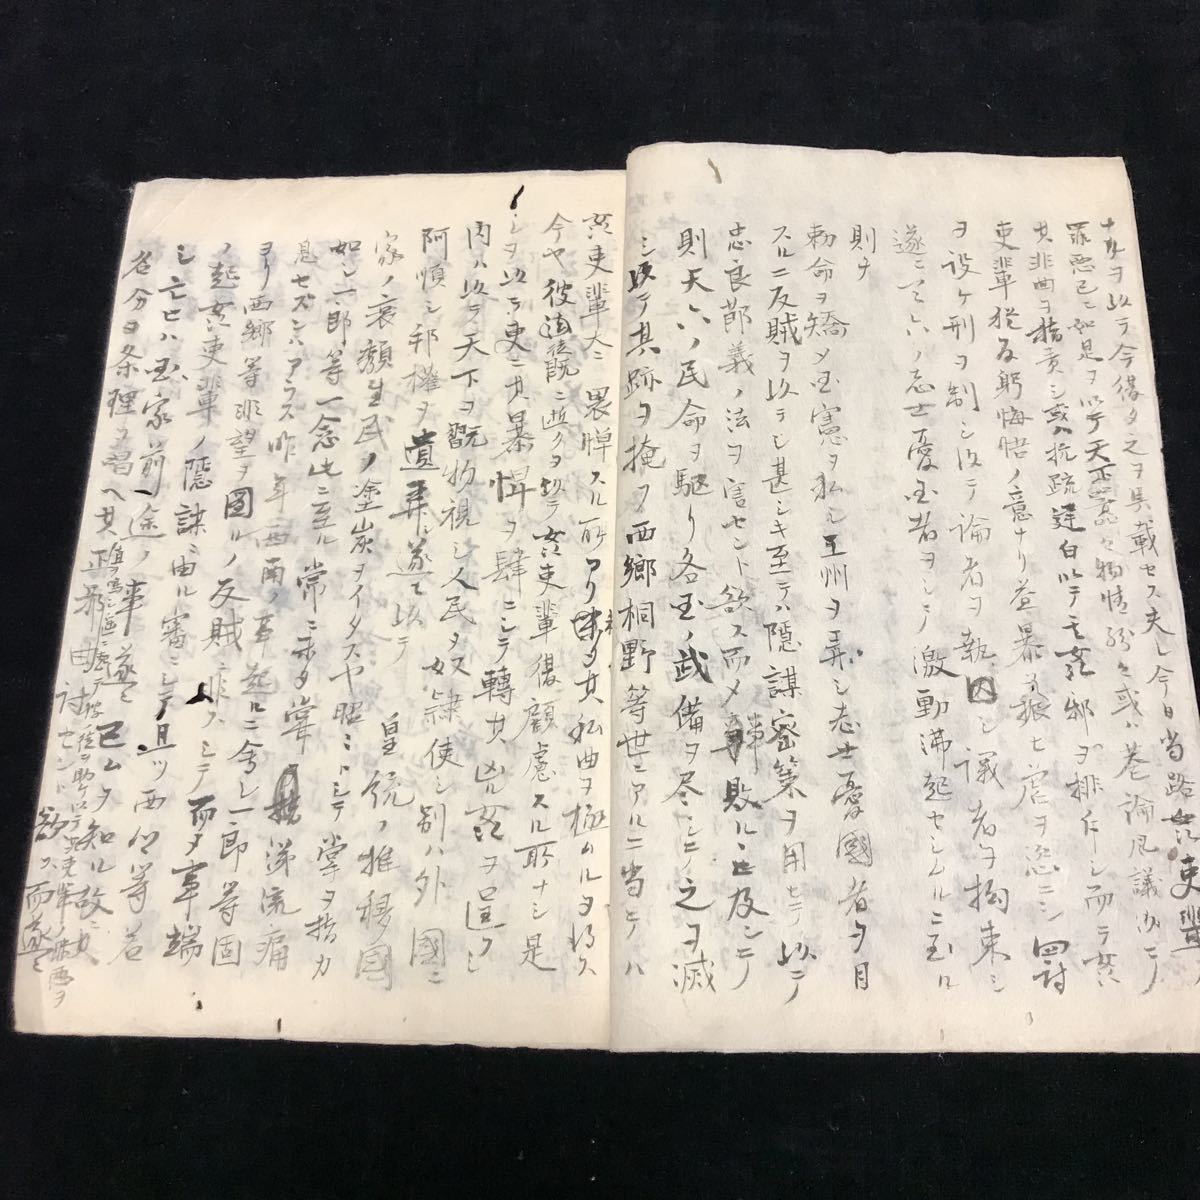 ヲ以テ今僅タ之ヲ具載セス夫レ今日当路姦吏輩ノ
罪悪已ニ如是ヲ以テ天正囂々物情紛々或ハ巷論風議
其非曲ヲ指責シ或ハ抗疏建白以テ其姦邪ヲ排斥シ而テ姦
吏輩
ヲ設ケ刑ヲ制シ以テ論者ヲ執囚シ議者ヲ拘束シ
遂ニ六ノ志士憂国者ヲシテ激動沸起セシムルニ至ル
則チ
勅命ヲ矯メ国憲ヲ私シ王州ヲ弄シ志士憂國者ヲ目
スルニ反賊ヲ以テシ甚シキ至テハ隠謀密策ヲ用ヒテ以テ
忠良節義ノ法ヲ害セント欲ス而メ事敗ルニ及ンテ
則天六ノ民命ヲ駆リ各国ノ武備ヲ尽シ之ヲ滅
シ以テ其跡ヲ掩ク西郷桐野等世ニアルニ当テハ
姦吏輩大ニ畏憚スル所アリ未タ其私曲ヲ極ムルヲ得ス
今ヤ彼徒既ニ逝クヲ以テ姦吏輩復顧慮スル所ナシ是
ヲ以テ更ニ其暴悍ヲ肆ニシテ轉其凶姦ヲ逞クシ
内ハ以テ天下ヲ翫物視シ人民ヲ奴隷使シ別ハ外國ニ
阿順シ邦權ヲ遺弃シ遂ニ以テ 皇統ノ推移国
家ノ衰頽生民ノ塗炭ヲイタスヤ照ミトシテ掌ヲ指カ
如シ一郎等一念此ニ至ル常ニ未タ嘗 涕流痛
息セズンハアラス昨年西南ノ事起ルニ会シ一郎等固
ヨリ西郷等非望ヲ圖ルノ反賊ニ非スシテ而メ事端
ノ起姦吏輩ノ隠謀ニ由ル審ニシテ且ツ西郷等若
シ亡ヒハ国家前途ノ事遂ニ已ムヲ知ル故ニ
名分ヲ条理ヲ 其正邪 討セント欲ス而遂ニ